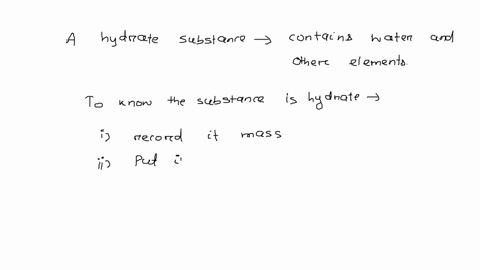 A hydrate substance → contains water and
othere elements.
To know the substance is hydrate →
i) record it mass
ii) Put i